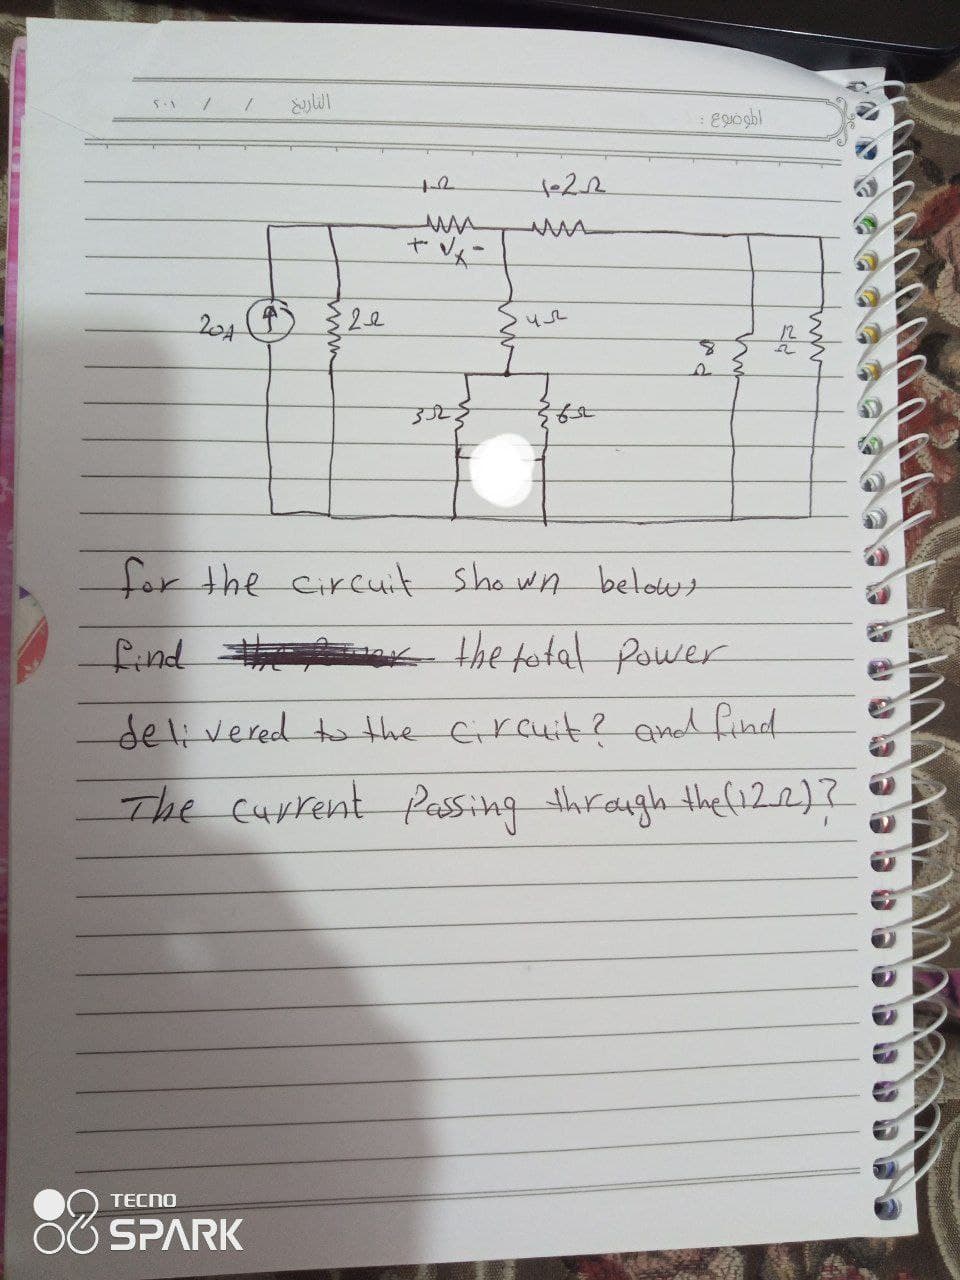 الموضوع :
التاريخ / / ٢٠١
1Ω
1.2Ω
+ Vx -
20A
2Ω
4Ω
8Ω
12Ω
3Ω
6Ω
for the circuit shown below,
find the total power
delivered to the circuit? and find
The current Passing through the (12Ω)?
TECNO
SPARK